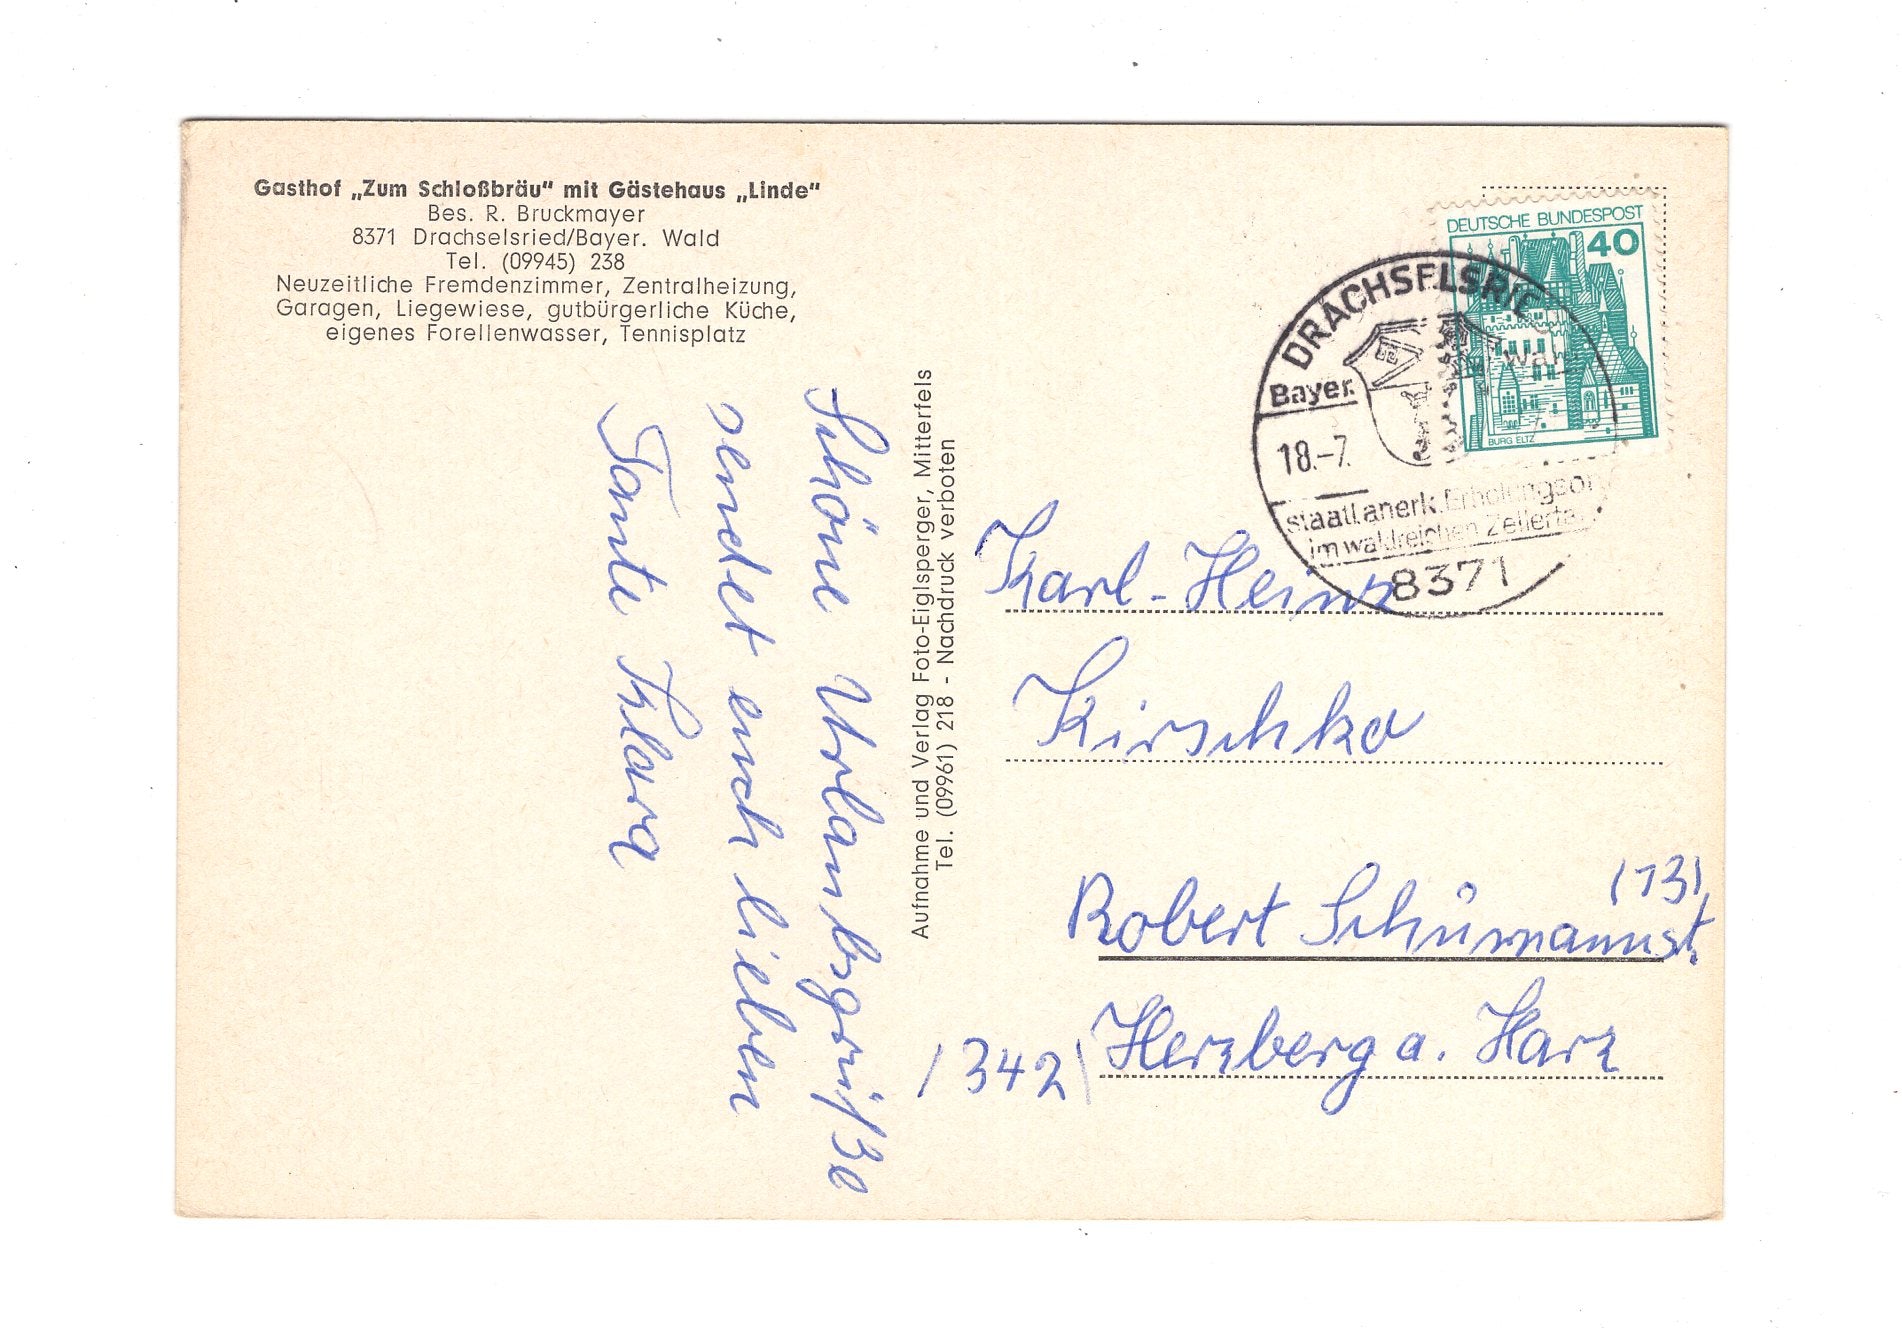 Gasthof „Zum Schloßbräu" mit Gästehaus „Linde"
Bes. R. Bruckmayer
8371 Drachselsried/Bayer. Wald
Tel. (09945) 238
Neuzeitliche Fremdenzimmer, Zentralheizung,
Garagen, Liegewiese, gutbürgerliche Küche,
eigenes Forellenwasser, Tennisplatz
Schöne Urlaubsgrüße
sendet euch lieben
Tante Klara
Aufnahme und Verlag Foto-Eiglsperger, Mitterfels
Tel. (09961) 218 - Nachdruck verboten
DEUTSCHE BUNDESPOST
40
BURG ELTZ
DRACHSELSRIE
Bayer. wal
18.-7.
staatl. anerk. Erholungsor
im waldreichen Zellerta
8371
Karl-Heinz
Kirschka
(13)
Robert Schumannst.
(342) Herzberg a. Harz